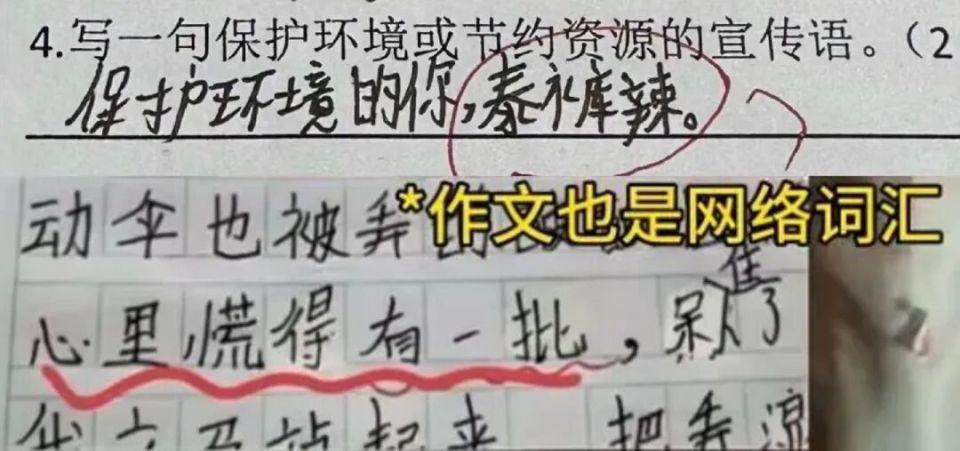 4.写一句保护环境或节约资源的宣传语。（2
保护环境的你,泰裤辣。
*作文也是网络词汇
动伞也被弄
心里慌得有一批，呆了
焦
起来 把弄